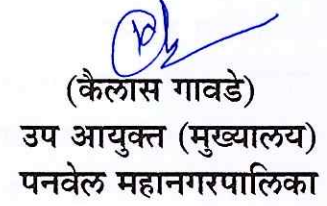 (कैलास गावडे)
उप आयुक्त (मुख्यालय)
पनवेल महानगरपालिका